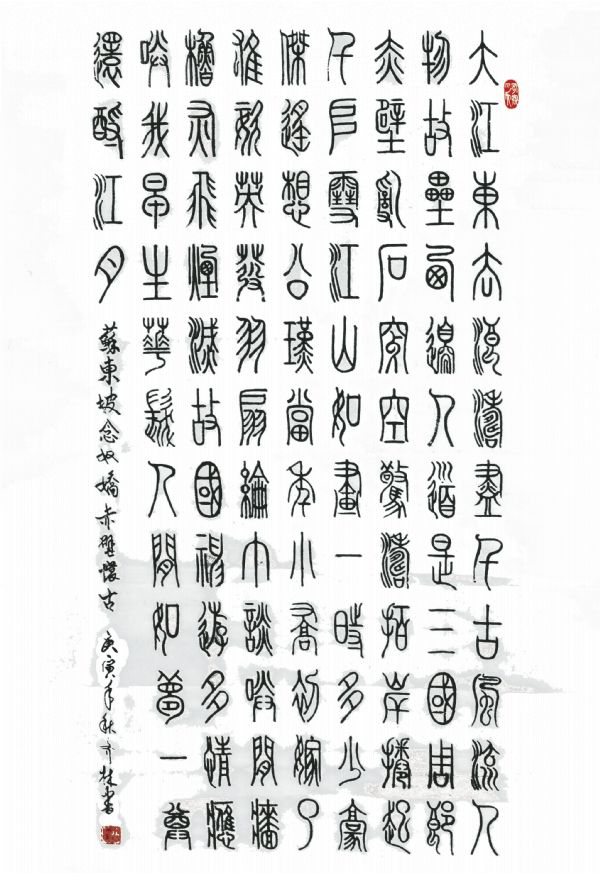 大江東去浪濤盡千古風流人
物故壘西邊人道是三國周郎
赤壁亂石穿空驚濤拍岸捲起
千堆雪江山如畫一時多少豪
傑遙想公瑾當年小喬初嫁了
雄姿英發羽扇綸巾談笑間檣
櫓灰飛煙滅故國神遊多情應
笑我早生華髮人間如夢一尊
還酹江月
蘇東坡念奴嬌赤壁懷古 庚寅年秋 林書